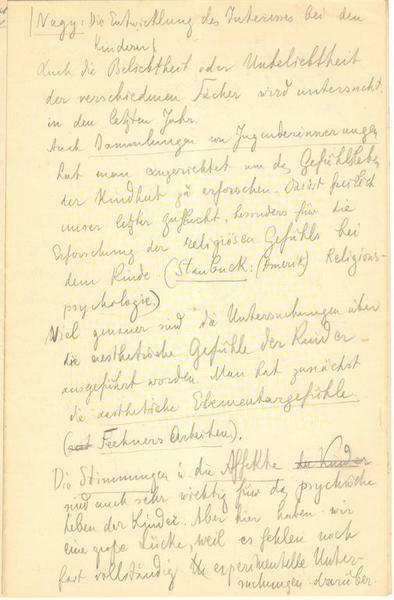 (Nagy: Die Entwicklung des Interesses bei den
Kindern)
Auch die Beliebtheit oder Unbeliebtheit
der verschiedenen Fächer wird untersucht
in den letzten Jahr.
Auch Sammlungen von Jugenderinnerungen
hat man eingerichtet um das Gefühlsleben
der Kindheit zu erforschen. Das ist freilich
unser letzter Zuflucht, besonders für die
Erforschung der religiösen Gefühls bei
dem Kinde. (Starbuck: (Amerik) Religions-
psychologie)
Viel genauer sind die Untersuchungen über
die aesthetische Gefühle der Kinder
ausgeführt worden. Man hat zunächst
die aesthetische Elementargefühle
(Fechners Arbeiten).
Die Stimmungen u. die Affekte der Kinder
sind auch sehr wichtig für das psychische
Leben der Kinder. Aber hier haben wir
eine große Lücke, weil es fehlen noch
fast vollständig die experimentelle Unter-
suchungen darüber.